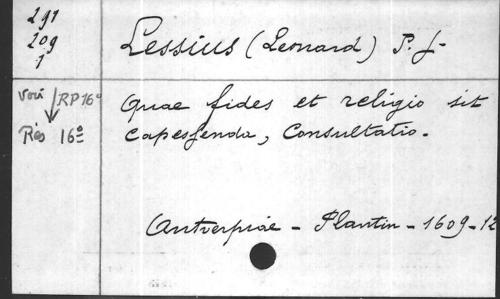 291
209
1
Lessius (Leonard) P. J.
Voir RP 16º
Rés 16º
Quae fides et religio sit
capessenda, Consultatio.
Antverpiae - Plantin - 1609 - 12